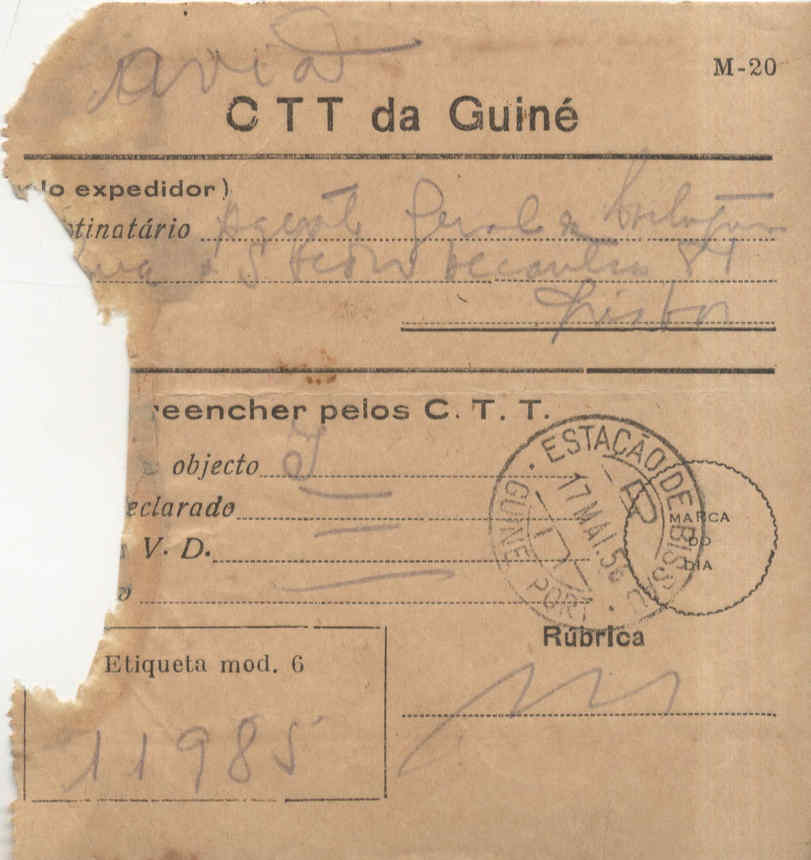 avião
M-20
CTT da Guiné
lo expedidor)
tinatário Agente Geral
84
Lisboa
reencher pelos C. T. T.
objecto
eclarado
V. D.
o
ESTAÇÃO DE BISS
17 MAI. 56
GUINÉ PORT
MARCA
DO
DIA
Rúbrica
Etiqueta mod. 6
11985